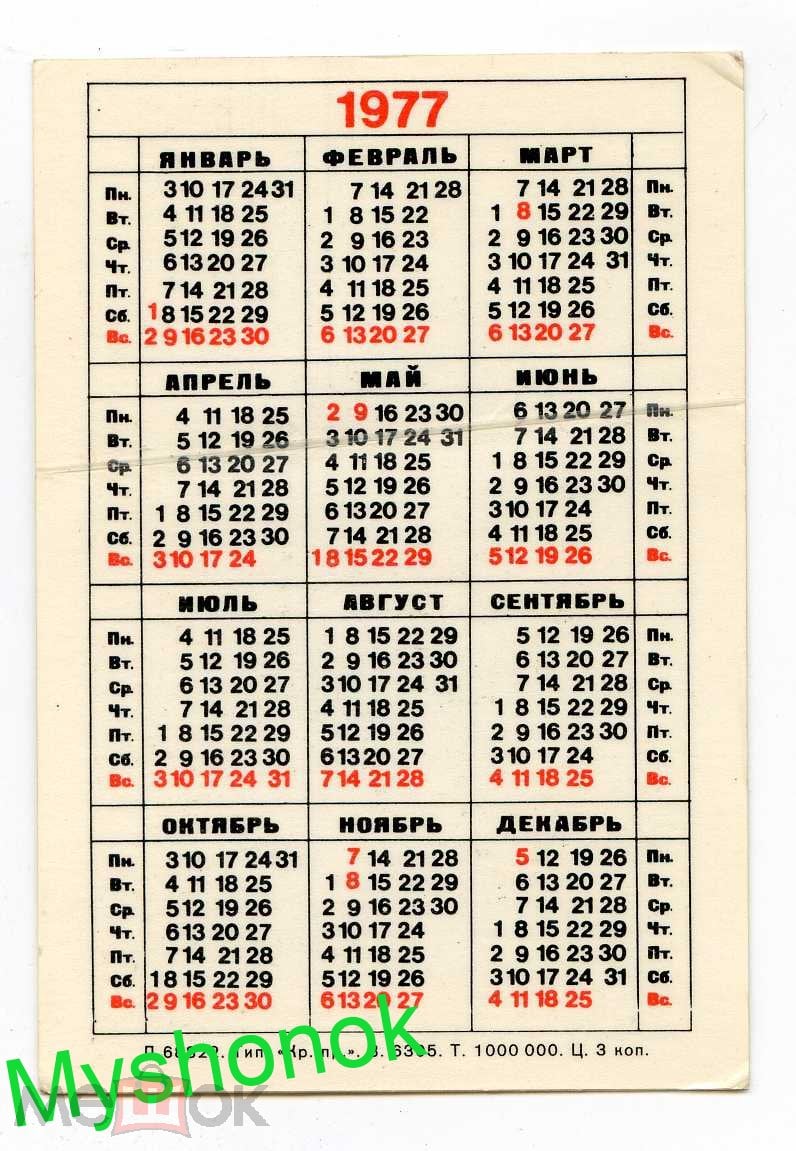 1977
ЯНВАРЬ ФЕВРАЛЬ МАРТ
Пн. 3 10 17 24 31 7 14 21 28 7 14 21 28 Пн.
Вт. 4 11 18 25 1 8 15 22 1 8 15 22 29 Вт.
Ср. 5 12 19 26 2 9 16 23 2 9 16 23 30 Ср.
Чт. 6 13 20 27 3 10 17 24 3 10 17 24 31 Чт.
Пт. 7 14 21 28 4 11 18 25 4 11 18 25 Пт.
Сб. 1 8 15 22 29 5 12 19 26 5 12 19 26 Сб.
Вс. 2 9 16 23 30 6 13 20 27 6 13 20 27 Вс.
АПРЕЛЬ МАЙ ИЮНЬ
Пн. 4 11 18 25 2 9 16 23 30 6 13 20 27 Пн.
Вт. 5 12 19 26 3 10 17 24 31 7 14 21 28 Вт.
Ср. 6 13 20 27 4 11 18 25 1 8 15 22 29 Ср.
Чт. 7 14 21 28 5 12 19 26 2 9 16 23 30 Чт.
Пт. 1 8 15 22 29 6 13 20 27 3 10 17 24 Пт.
Сб. 2 9 16 23 30 7 14 21 28 4 11 18 25 Сб.
Вс. 3 10 17 24 1 8 15 22 29 5 12 19 26 Вс.
ИЮЛЬ АВГУСТ СЕНТЯБРЬ
Пн. 4 11 18 25 1 8 15 22 29 5 12 19 26 Пн.
Вт. 5 12 19 26 2 9 16 23 30 6 13 20 27 Вт.
Ср. 6 13 20 27 3 10 17 24 31 7 14 21 28 Ср.
Чт. 7 14 21 28 4 11 18 25 1 8 15 22 29 Чт.
Пт. 1 8 15 22 29 5 12 19 26 2 9 16 23 30 Пт.
Сб. 2 9 16 23 30 6 13 20 27 3 10 17 24 Сб.
Вс. 3 10 17 24 31 7 14 21 28 4 11 18 25 Вс.
ОКТЯБРЬ НОЯБРЬ ДЕКАБРЬ
Пн. 3 10 17 24 31 7 14 21 28 5 12 19 26 Пн.
Вт. 4 11 18 25 1 8 15 22 29 6 13 20 27 Вт.
Ср. 5 12 19 26 2 9 16 23 30 7 14 21 28 Ср.
Чт. 6 13 20 27 3 10 17 24 1 8 15 22 29 Чт.
Пт. 7 14 21 28 4 11 18 25 2 9 16 23 30 Пт.
Сб. 1 8 15 22 29 5 12 19 26 3 10 17 24 31 Сб.
Вс. 2 9 16 23 30 6 13 20 27 4 11 18 25 Вс.
Тип. «Кр. пр.». З. Т. 1000 000. Ц. 3 коп.
Myshonok
мешок